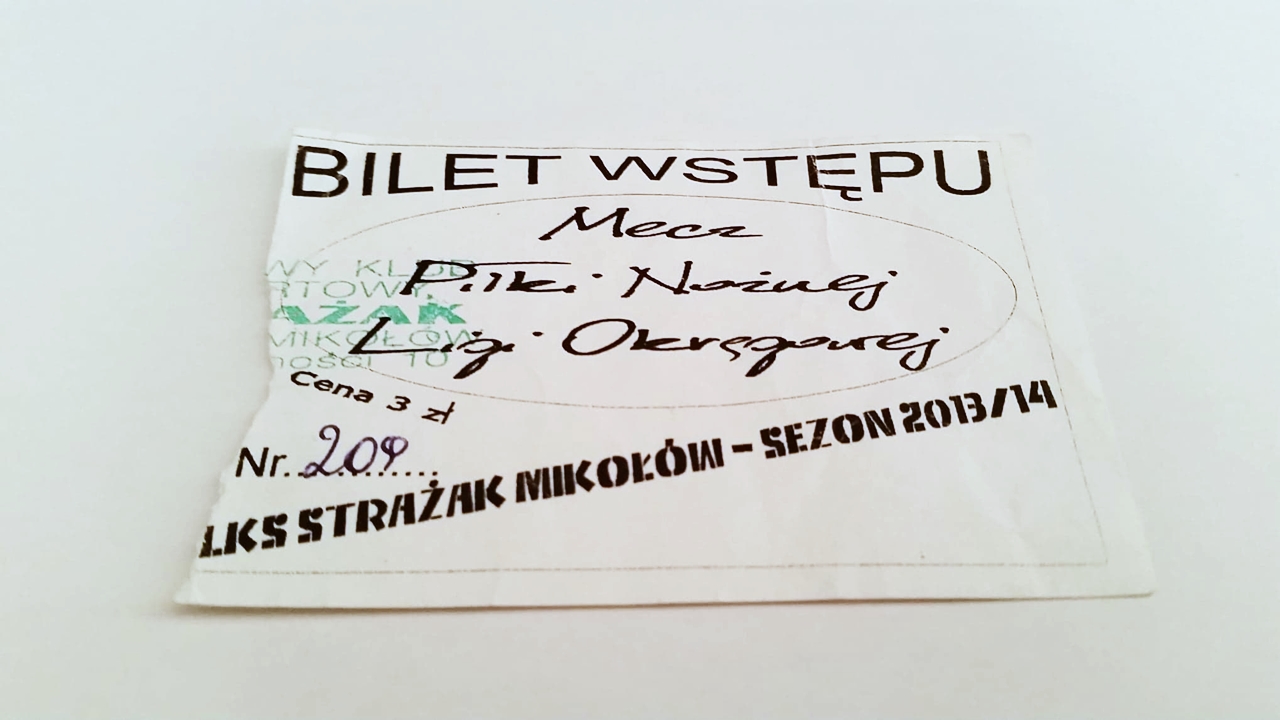 BILET WSTĘPU
Mecz
Piłki Nożnej
Ligi Okręgowej
WY KLUB
RTOWY
AŻAK
MIKOŁÓW
ności 10
Cena 3 zł
Nr. 209
LKS STRAŻAK MIKOŁÓW - SEZON 2013/14